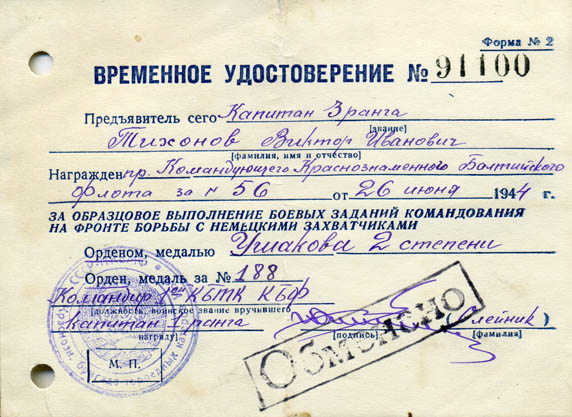 Форма № 2
ВРЕМЕННОЕ УДОСТОВЕРЕНИЕ № 91100
Предъявитель сего Капитан 3 ранга
[звание]
Тихонов Виктор Иванович
[фамилия, имя и отчество]
Награжден пр. Командующего Краснознаменного Балтийского
Флота за № 56 от 26 июня 1944 г.
ЗА ОБРАЗЦОВОЕ ВЫПОЛНЕНИЕ БОЕВЫХ ЗАДАНИЙ КОМАНДОВАНИЯ
НА ФРОНТЕ БОРЬБЫ С НЕМЕЦКИМИ ЗАХВАТЧИКАМИ
Орденом, медалью Ушакова 2 степени
Орден, медаль за № 188
Командир КБТК КБФ
[должность, воинское звание вручившего
капитан ранга (Олейник)
награду] [подпись] (фамилия)
М. П.
Обменено